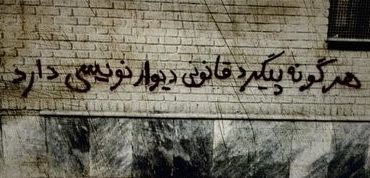 هرگونه پیگیرد قانونی دیوار نویسی دارد